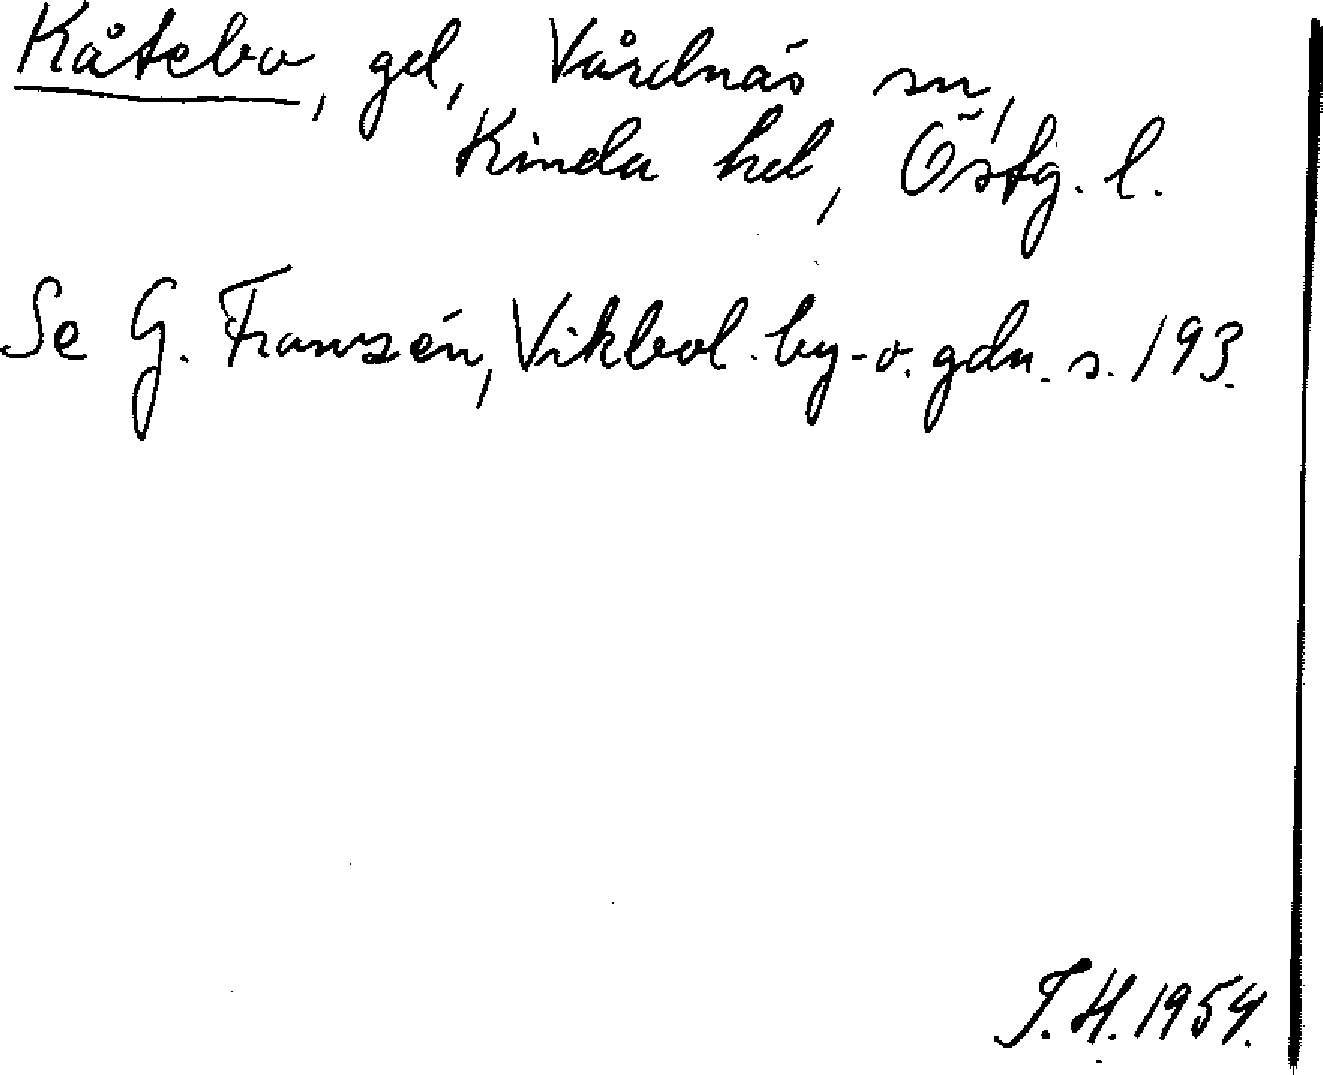 Kåtebo, gd, Vårdnäs sn,
Kinda hd, Östg. l.
Se G. Franzén, Vikbol. by- o. gdn. s. 193.
T.H. 1954.